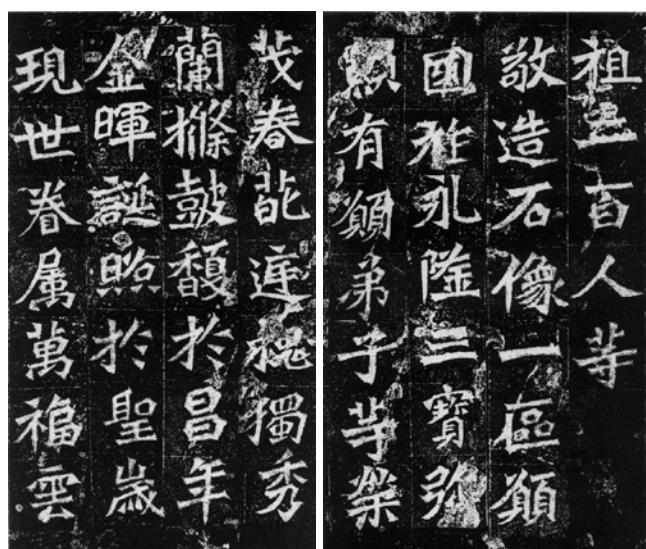 祖二百人等
敬造石像一區願
國祚永隆三寶弥
顯有願弟子等榮
茂春葩庭槐獨秀
蘭條鼓馥於昌年
金暉誕照於聖歲
現世眷属萬福雲